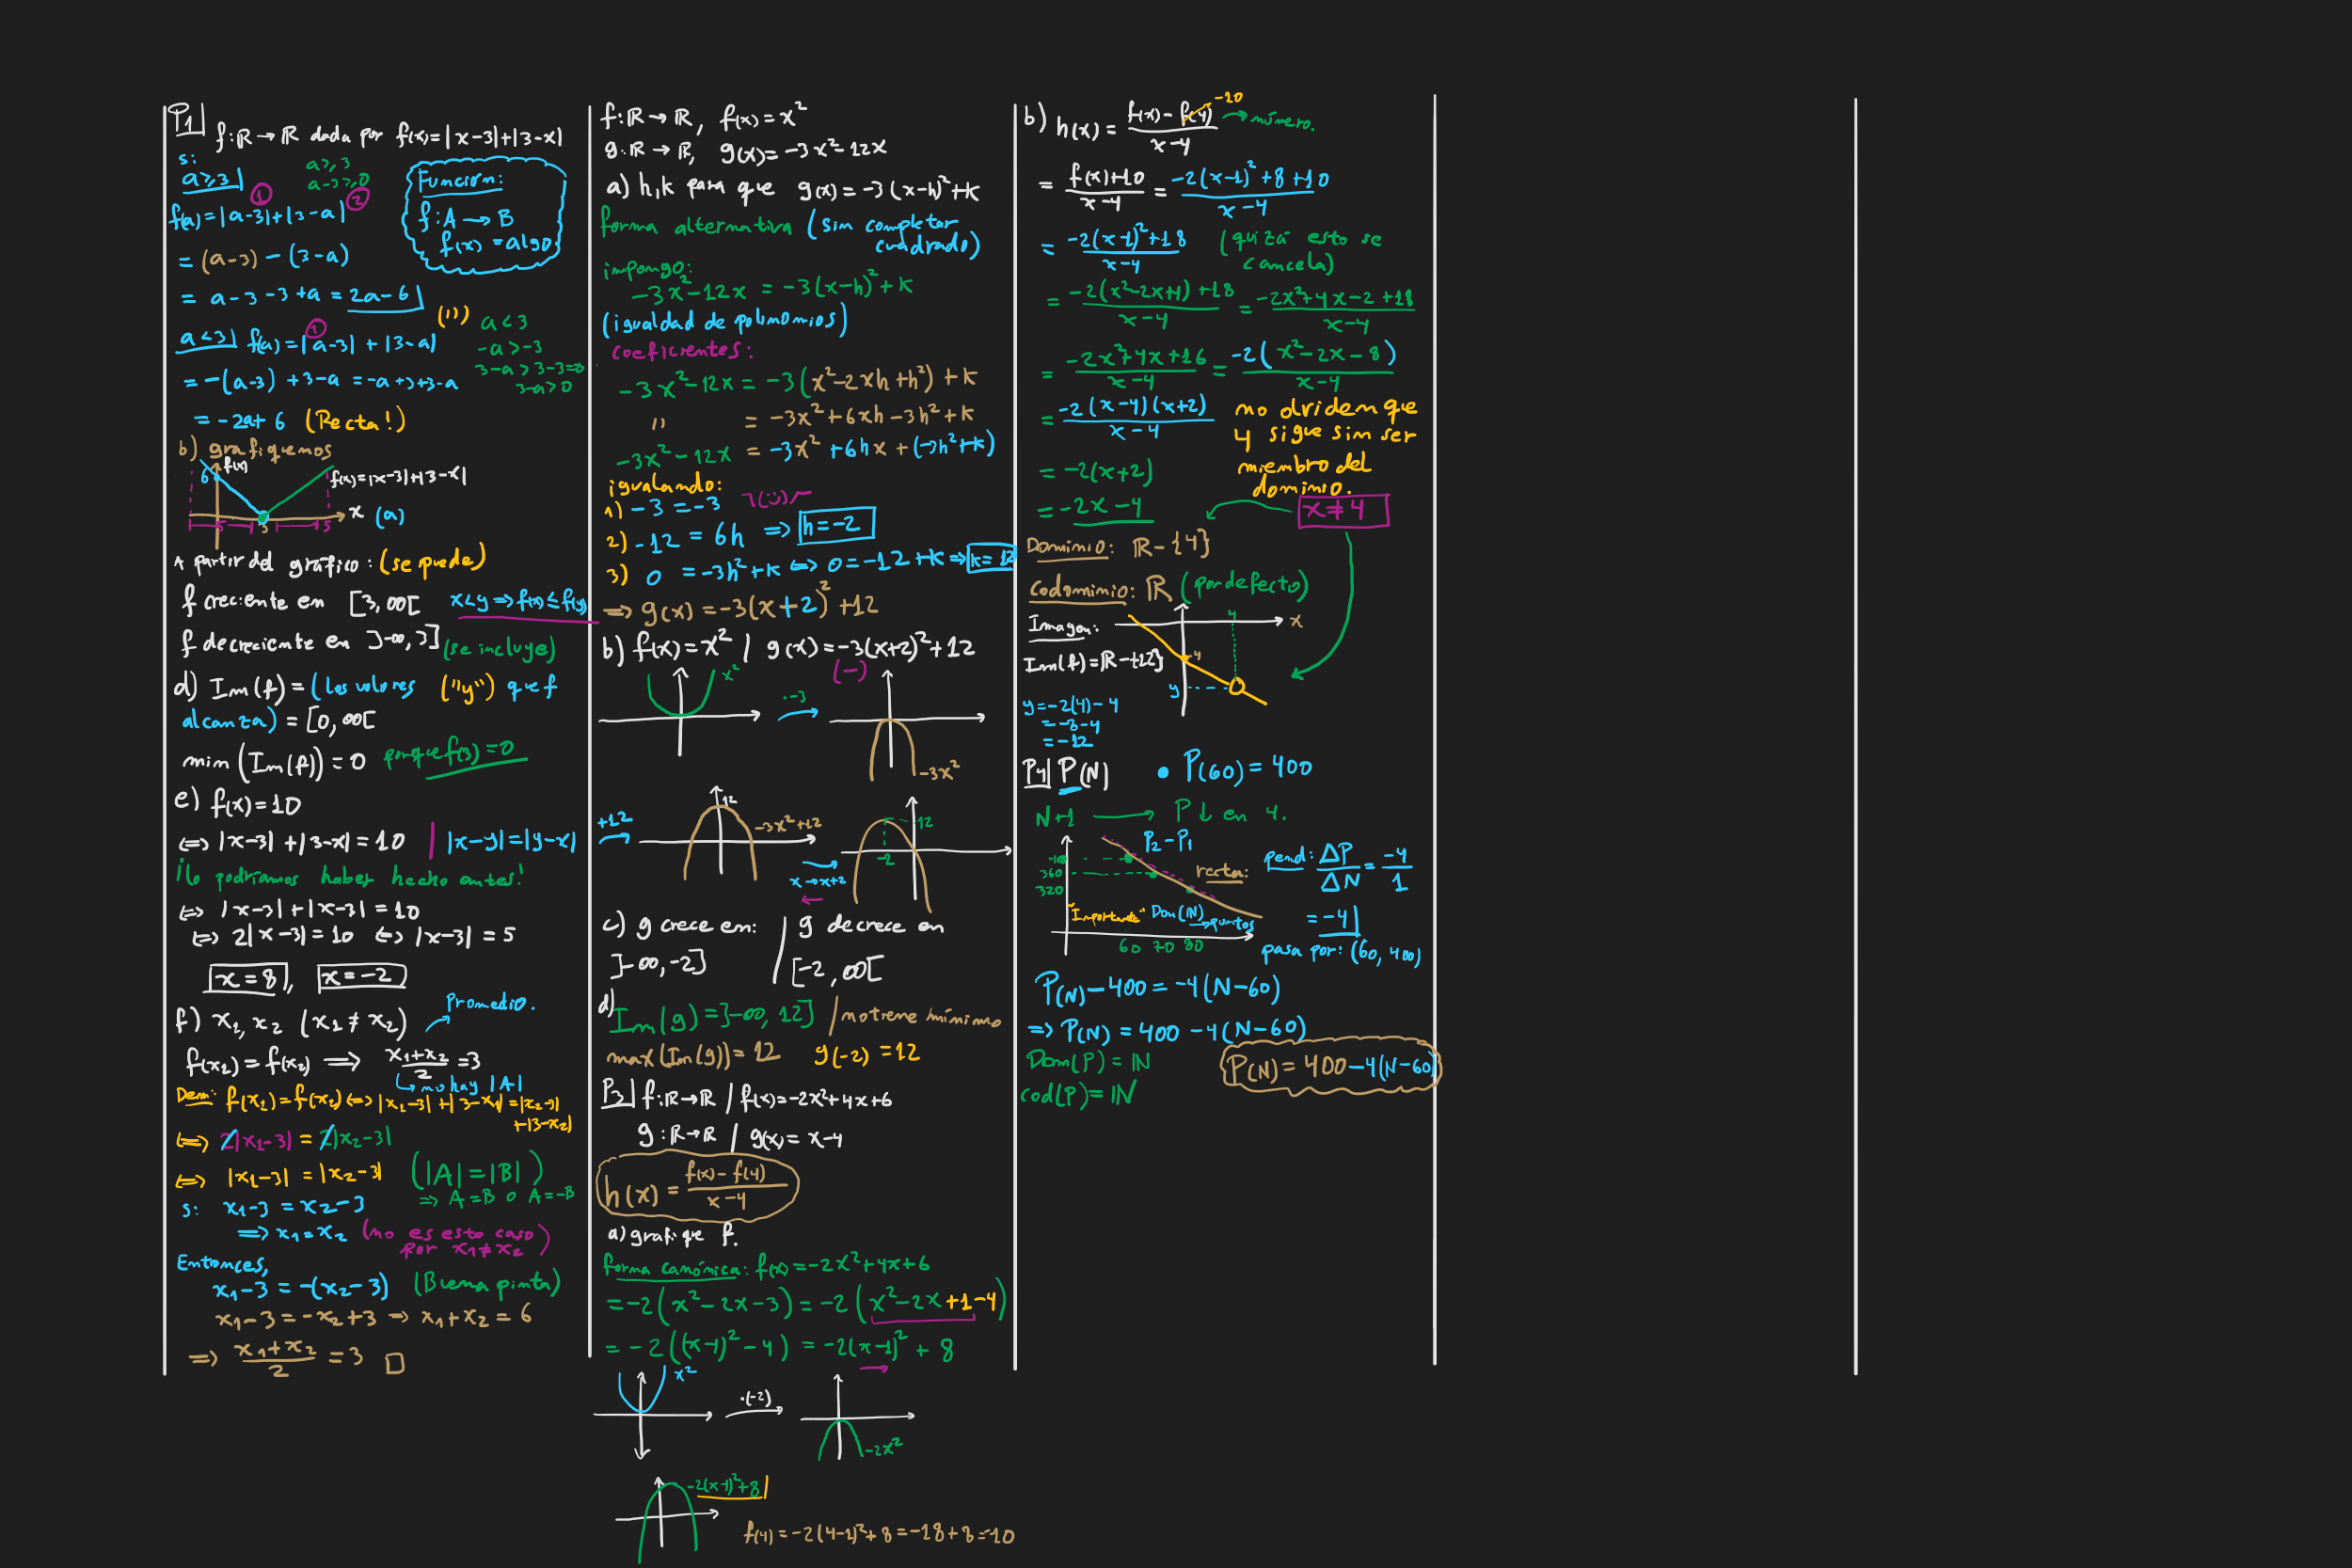 P1
f:ℝ→ℝ dada por f(x)=|x-3|+|3-x|
s:
a≥3
a≥3
a-3≥0
Función:
f:A→B
f(x)=algo
f(a)=|a-3|+|3-a|
① ②
=(a-3)-(3-a)
=a-3-3+a=2a-6
a<3 f(a)=|a-3|+|3-a|
①
(11)
a<3
-a>-3
3-a>3-3=0
3-a>0
=-(a-3)+3-a=-a+3+3-a
=-2a+6 (Recta!)
b) grafiquemos
f(x)
6
f(x)=|x-3|+|3-x|
x (a)
5 3 5
A partir del gráfico: (se puede)
f creciente en [3,∞[ x<y⇒f(x)≤f(y)
f decreciente en ]-∞,3] (se incluye)
d) Im(f)=(los valores ("y") que f
alcanza)=[0,∞[
min(Im(f))=0 porque f(3)=0
e) f(x)=10
⇔|x-3|+|3-x|=10 | |x-y|=|y-x|
¡lo podríamos haber hecho antes!
⇔|x-3|+|x-3|=10
⇔2|x-3|=10 ⇔|x-3|=5
x=8, x=-2
f) x₁,x₂ (x₁≠x₂) Promedio.
f(x₁)=f(x₂)⟹(x₁+x₂)/2=3
↳no hay |A|
Dem: f(x₁)=f(x₂)⇔|x₁-3|+|3-x₁|=|x₂-3|
+|3-x₂|
⇔2|x₁-3|=2|x₂-3|
⇔|x₁-3|=|x₂-3| (|A|=|B|)
⇒A=B o A=-B
s: x₁-3=x₂-3
⟹x₁=x₂ (no es este caso
por x₁≠x₂)
Entonces,
x₁-3=-(x₂-3) (Buena pinta)
x₁-3=-x₂+3⇒x₁+x₂=6
⟹(x₁+x₂)/2=3 □
f:ℝ→ℝ, f(x)=x²
g:ℝ→ℝ, g(x)=-3x²-12x
a) h,k para que g(x)=-3(x-h)²+k
forma alternativa (sin completar
cuadrado)
impongo:
-3x²-12x=-3(x-h)²+k
(igualdad de polinomios)
coeficientes:
-3x²-12x=-3(x²-2xh+h²)+k
11 =-3x²+6xh-3h²+k
-3x²-12x=-3x²+6hx+(-3h²+k)
igualando:
1) -3=-3
2) -12=6h⇒h=-2
3) 0=-3h²+k⇔0=-12+k⇒k=12
⟹g(x)=-3(x+2)²+12
b) f(x)=x² / g(x)=-3(x+2)²+12
(-)
x²
·-3
-3x²
+12
12
-3x²+12
x→x+2
12
-2
c) g crece en: / g decrece en
]-∞,-2] / [-2,∞[
d)
Im(g)=]-∞,12] / no tiene mínimo
max(Im(g))=12 g(-2)=12
P3 f:ℝ→ℝ / f(x)=-2x²+4x+6
g:ℝ→ℝ / g(x)=x-4
h(x)=(f(x)-f(4))/(x-4)
a) grafique f.
forma canónica: f(x)=-2x²+4x+6
=-2(x²-2x-3)=-2(x²-2x+1-4)
=-2((x-1)²-4)=-2(x-1)²+8
x²
·(-2)
-2x²
-2(x-1)²+8
f(4)=-2(4-1)²+8=-18+8=-10
b) h(x)=(f(x)-f(4))/(x-4) -10 →número.
=(f(x)+10)/(x-4)=(-2(x-1)²+8+10)/(x-4)
=(-2(x-1)²+18)/(x-4) (quizá esto se
cancela)
=(-2(x²-2x+1)+18)/(x-4)=(-2x²+4x-2+18)/(x-4)
=(-2x²+4x+16)/(x-4)=(-2(x²-2x-8))/(x-4)
=(-2(x-4)(x+2))/(x-4)
no olviden que
4 sigue sin ser
miembro del
dominio.
=-2(x+2)
=-2x-4
x≠4
Dominio: ℝ-{4}
Codominio: ℝ (por defecto)
Imagen:
4
x
Im(f)=ℝ-{-12}
-4
y
y=-2(4)-4
=-8-4
=-12
P4 P(N) • P(60)=400
N+1 ⟶ P↓ en 4.
P₂-P₁
400
360
320
recta:
pend: ΔP/ΔN=-4/1
=-4
"Importante" Dom(ℕ)
→puntos
60 70 80
pasa por: (60,400)
P(N)-400=-4(N-60)
⟹P(N)=400-4(N-60)
Dom(P)=ℕ
P(N)=400-4(N-60)
cod(P)=ℕ